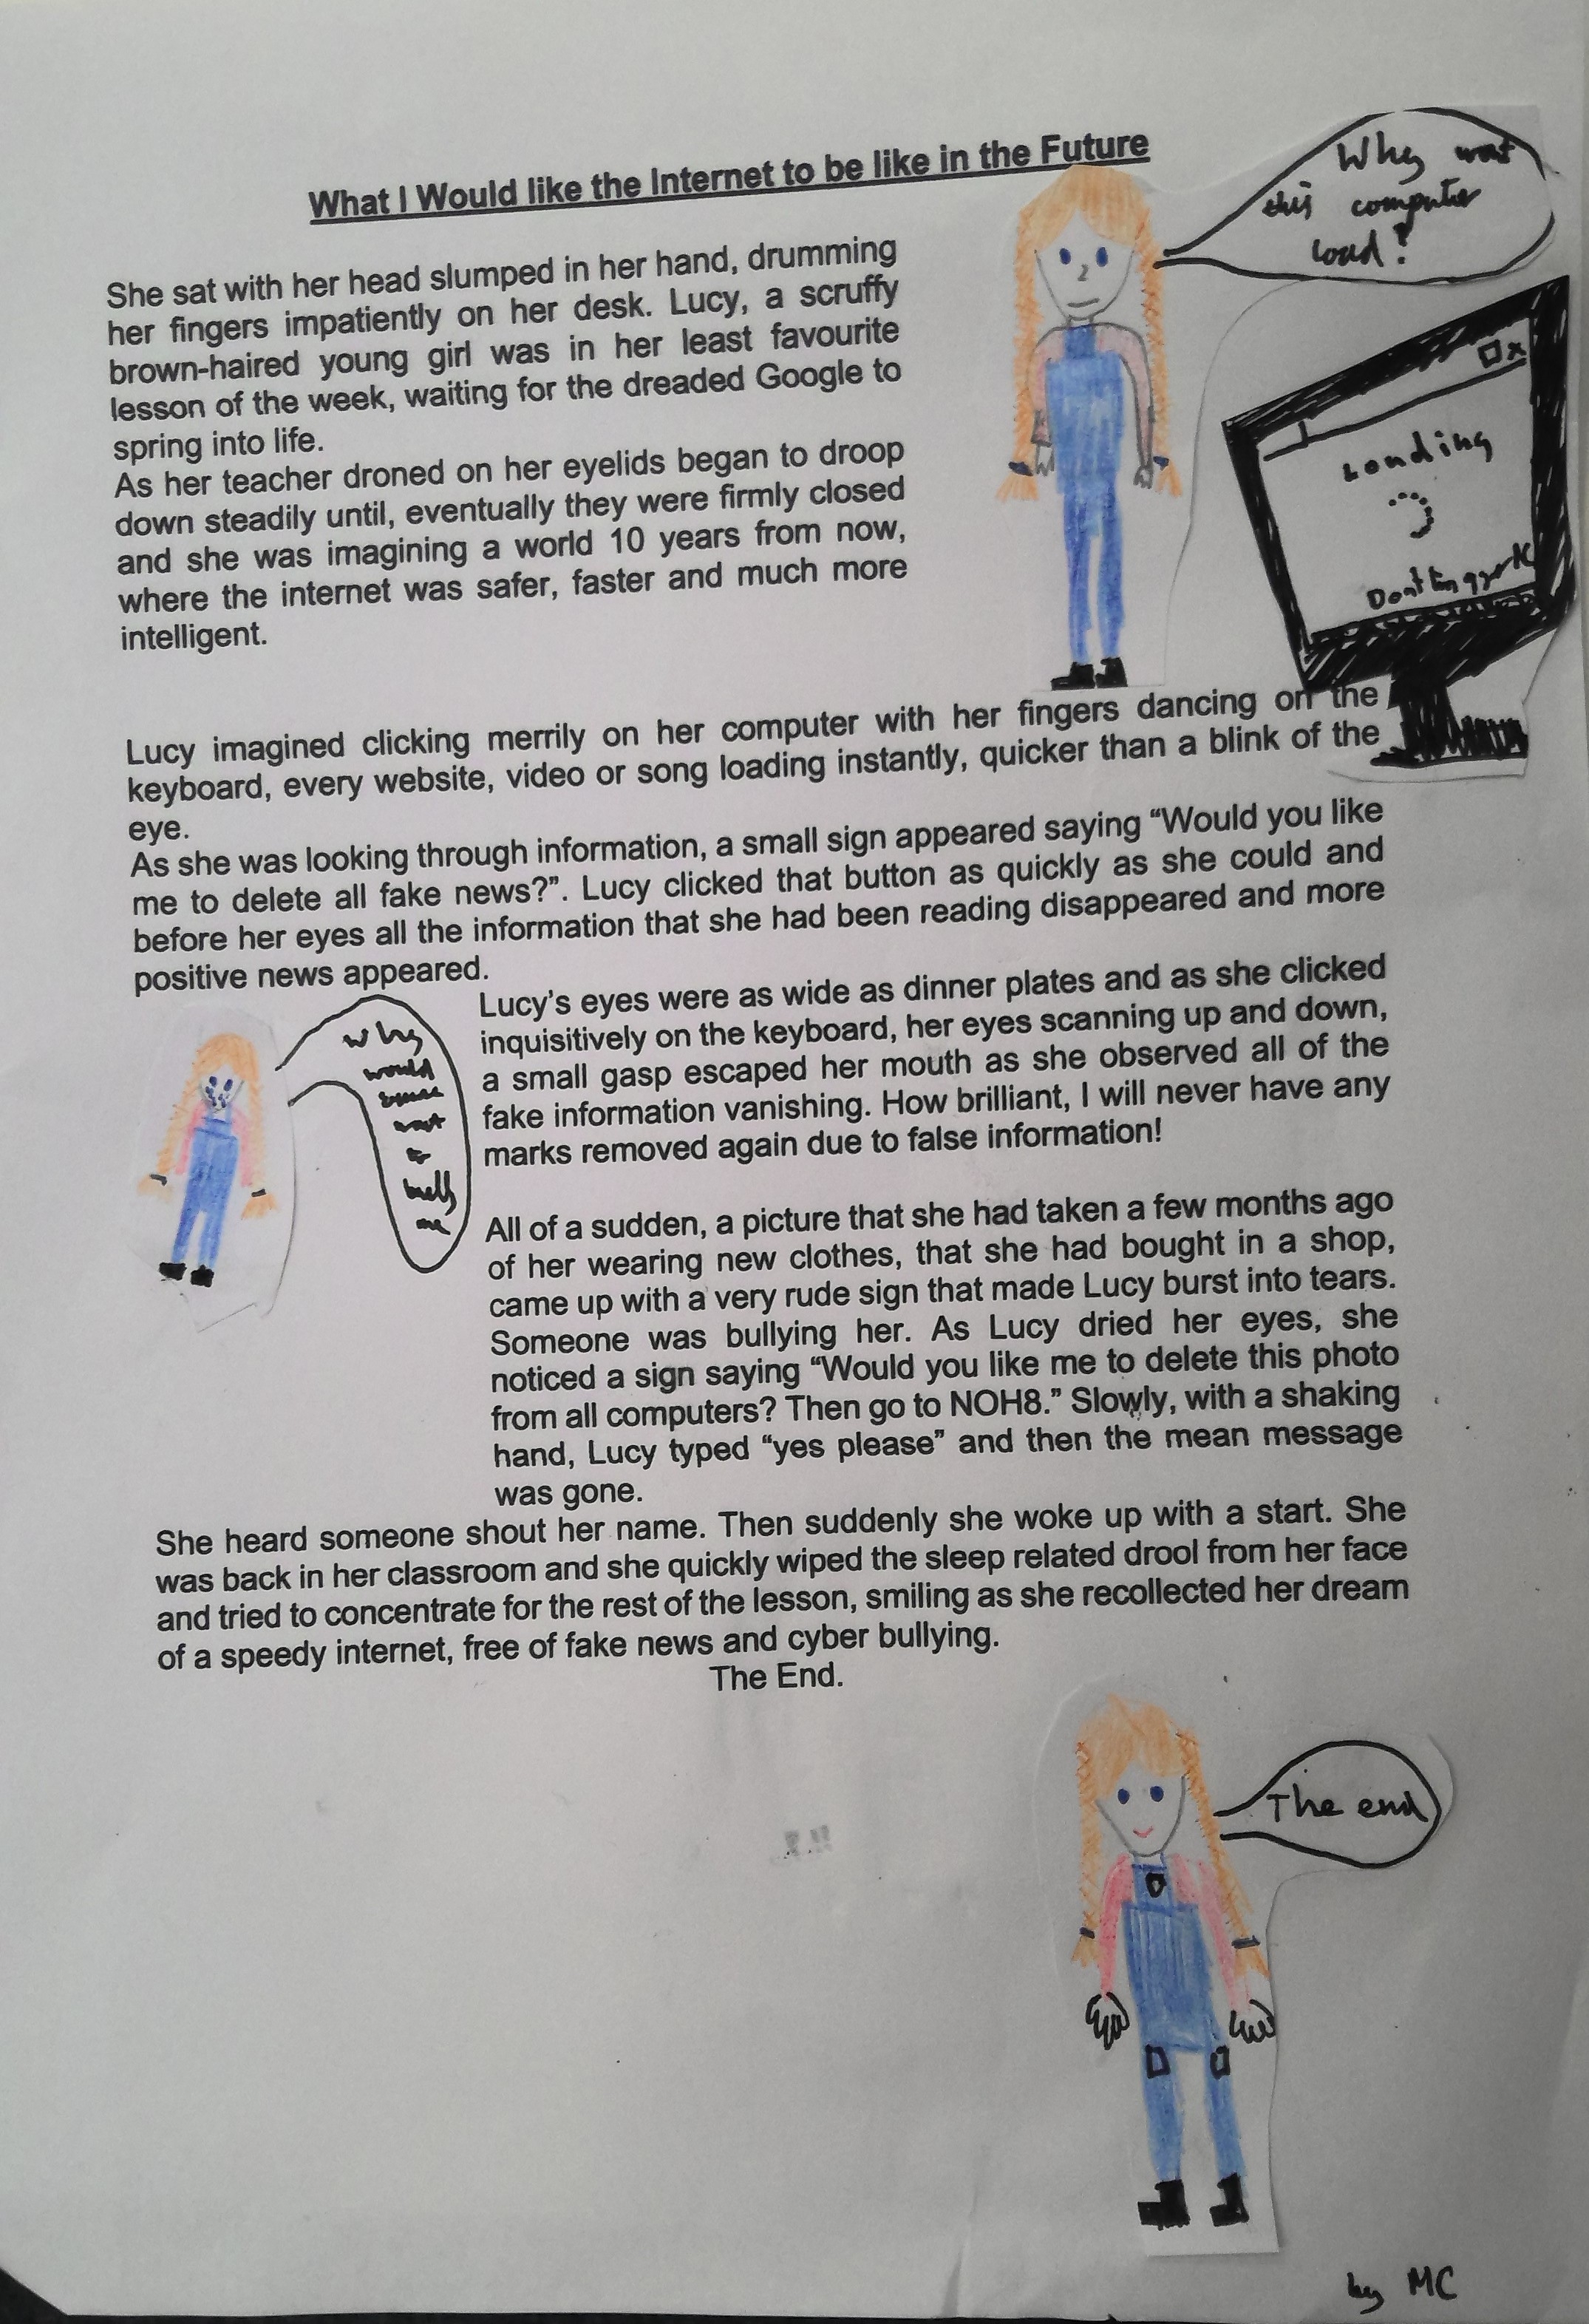 What I Would like the Internet to be like in the Future
Why wont
this computer
load?
She sat with her head slumped in her hand, drumming
her fingers impatiently on her desk. Lucy, a scruffy
brown-haired young girl was in her least favourite
lesson of the week, waiting for the dreaded Google to
spring into life.
As her teacher droned on her eyelids began to droop
down steadily until, eventually they were firmly closed
and she was imagining a world 10 years from now,
where the internet was safer, faster and much more
intelligent.
Loading
Lucy imagined clicking merrily on her computer with her fingers dancing on the
keyboard, every website, video or song loading instantly, quicker than a blink of the
eye.
As she was looking through information, a small sign appeared saying “Would you like
me to delete all fake news?”. Lucy clicked that button as quickly as she could and
before her eyes all the information that she had been reading disappeared and more
positive news appeared.
Lucy’s eyes were as wide as dinner plates and as she clicked
inquisitively on the keyboard, her eyes scanning up and down,
a small gasp escaped her mouth as she observed all of the
fake information vanishing. How brilliant, I will never have any
marks removed again due to false information!
why
would
want
to
bully
me
All of a sudden, a picture that she had taken a few months ago
of her wearing new clothes, that she had bought in a shop,
came up with a very rude sign that made Lucy burst into tears.
Someone was bullying her. As Lucy dried her eyes, she
noticed a sign saying “Would you like me to delete this photo
from all computers? Then go to NOH8.” Slowly, with a shaking
hand, Lucy typed “yes please” and then the mean message
was gone.
She heard someone shout her name. Then suddenly she woke up with a start. She
was back in her classroom and she quickly wiped the sleep related drool from her face
and tried to concentrate for the rest of the lesson, smiling as she recollected her dream
of a speedy internet, free of fake news and cyber bullying.
The End.
The end
by MC